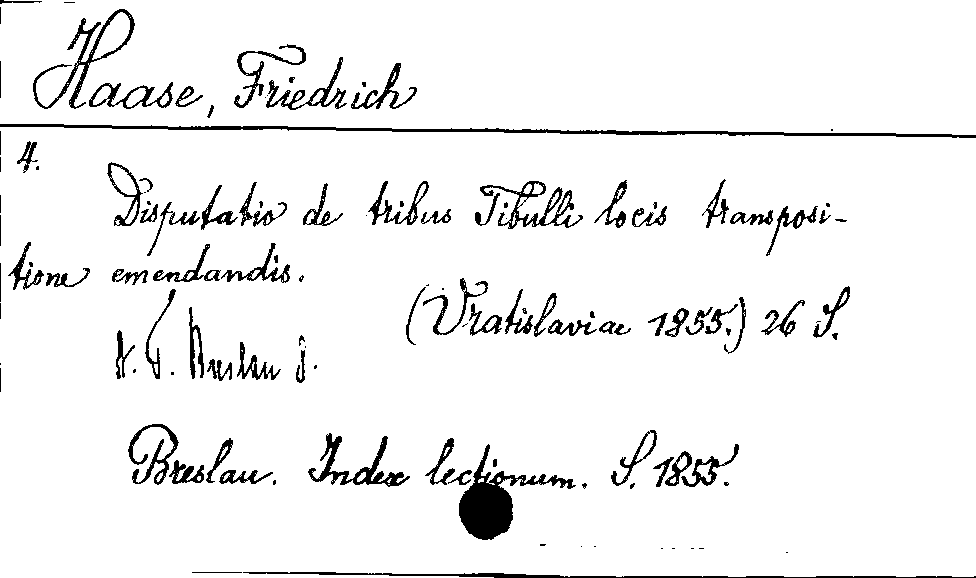 Haase, Friedrich
4.
Disputatio de tribus Tibulli locis transposi-
tione emendandis.
(Vratislaviae 1855.) 26 S.
Breslau
Breslau. Index lectionum. S. 1855.